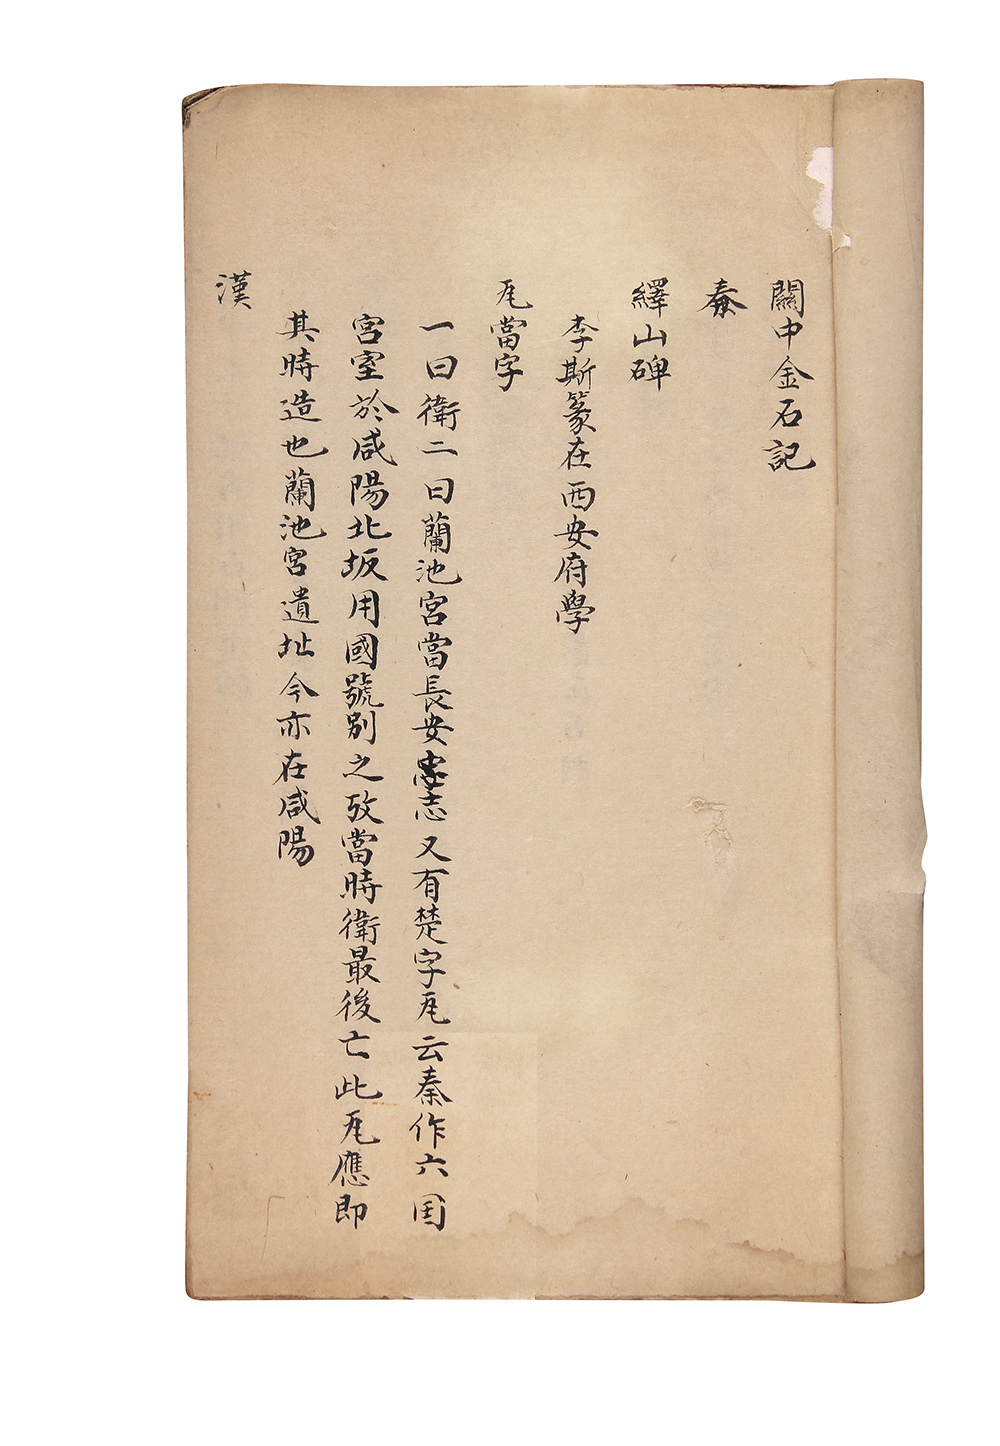 關中金石記
秦
繹山碑
李斯篆在西安府學
瓦當字
一曰衛二曰蘭池宮當長安志又有楚字瓦云秦作六国
宮室於咸陽北坂用國號別之攷當時衛最後亡此瓦應即
其時造也蘭池宮遺址今亦在咸陽
漢